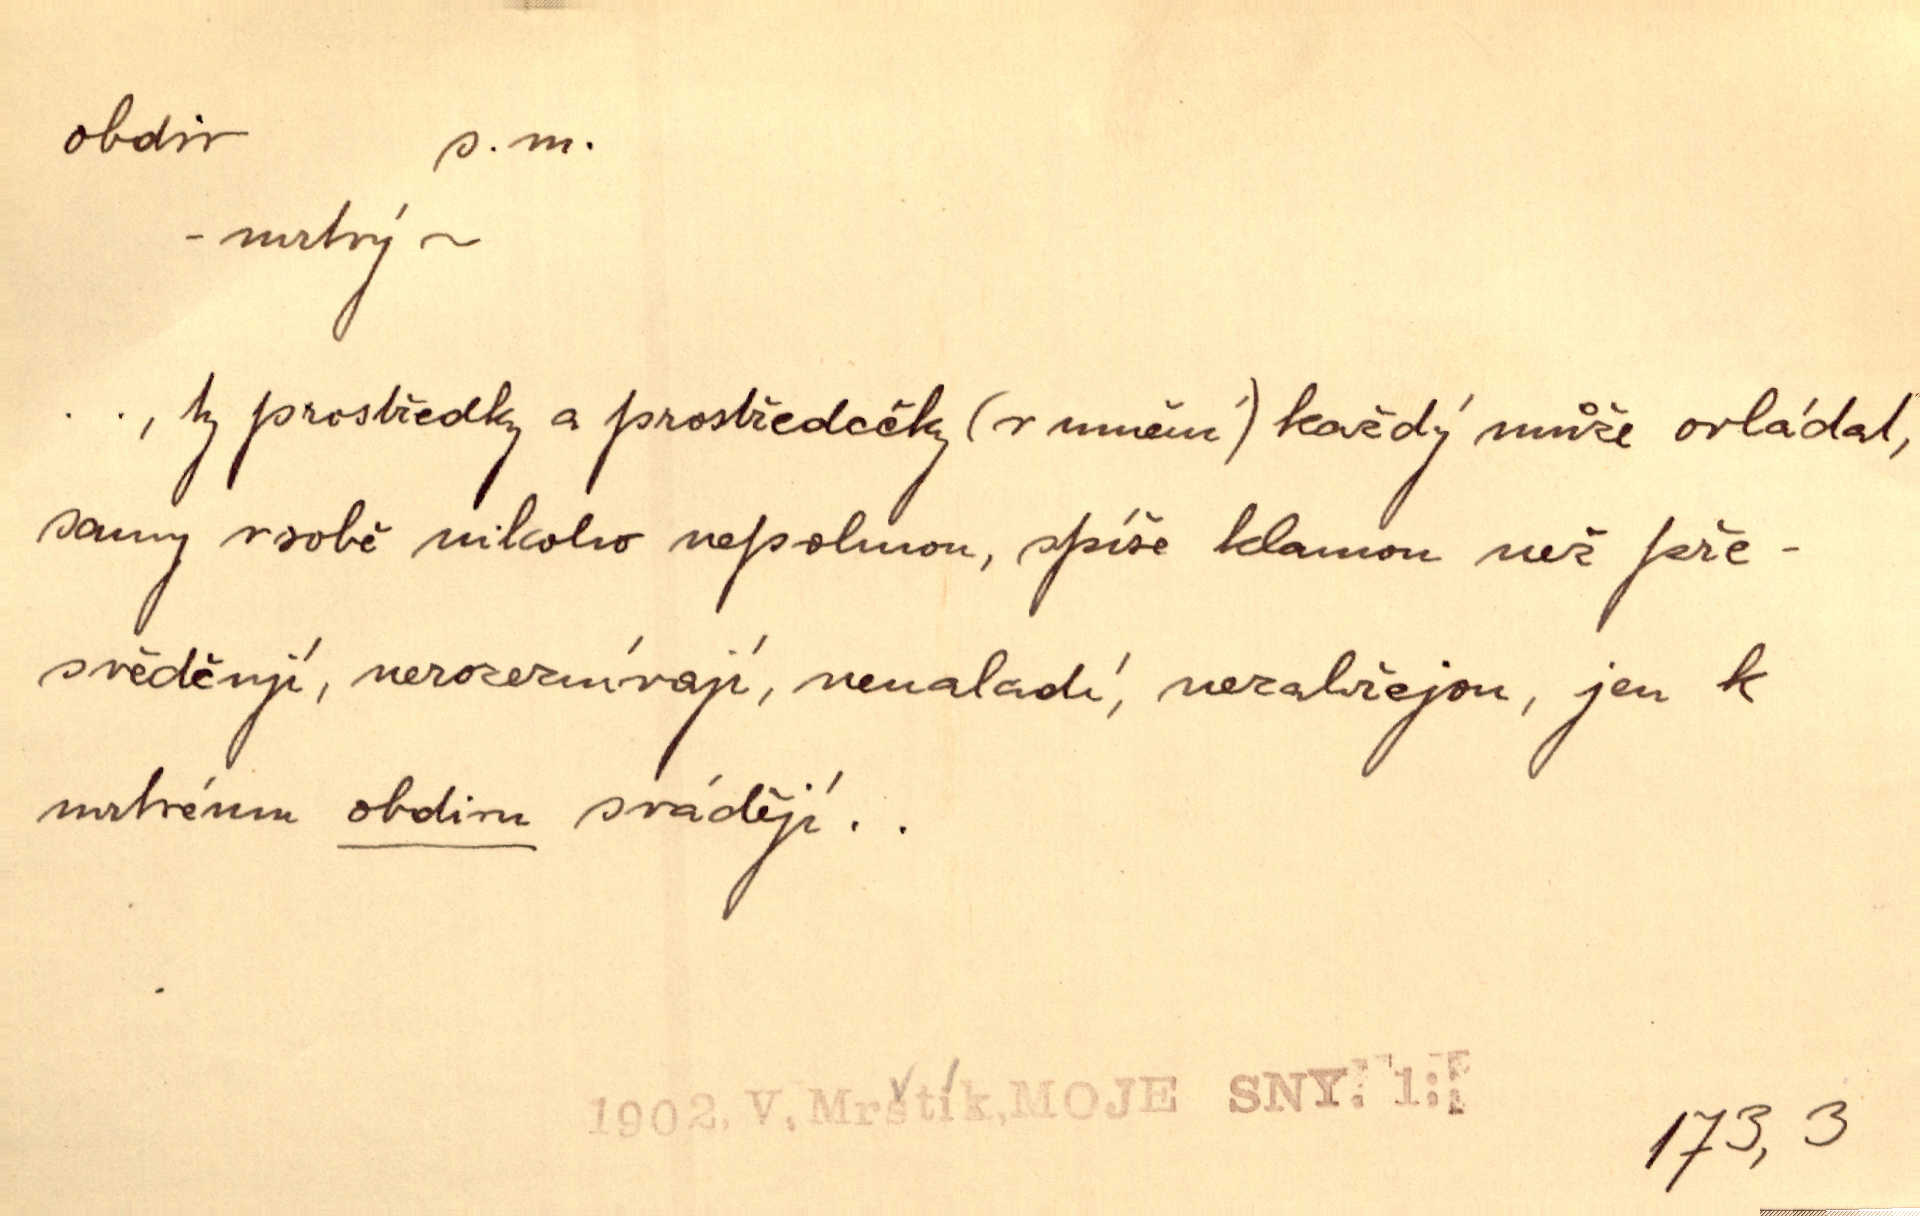 obdiv s. m.
- mrtvý ~
. ., ty prostředky a prostředečky (v umění) každý může ovládat,
samy v sobě nikoho nepohnou, spíše klamou než pře-
svědčují, nerozezvívají, nenaladí, nezahřejou, jen k
mrtvému obdivu svádějí . .
1902, V. Mrštík, MOJE SNY. 1:
173, 3